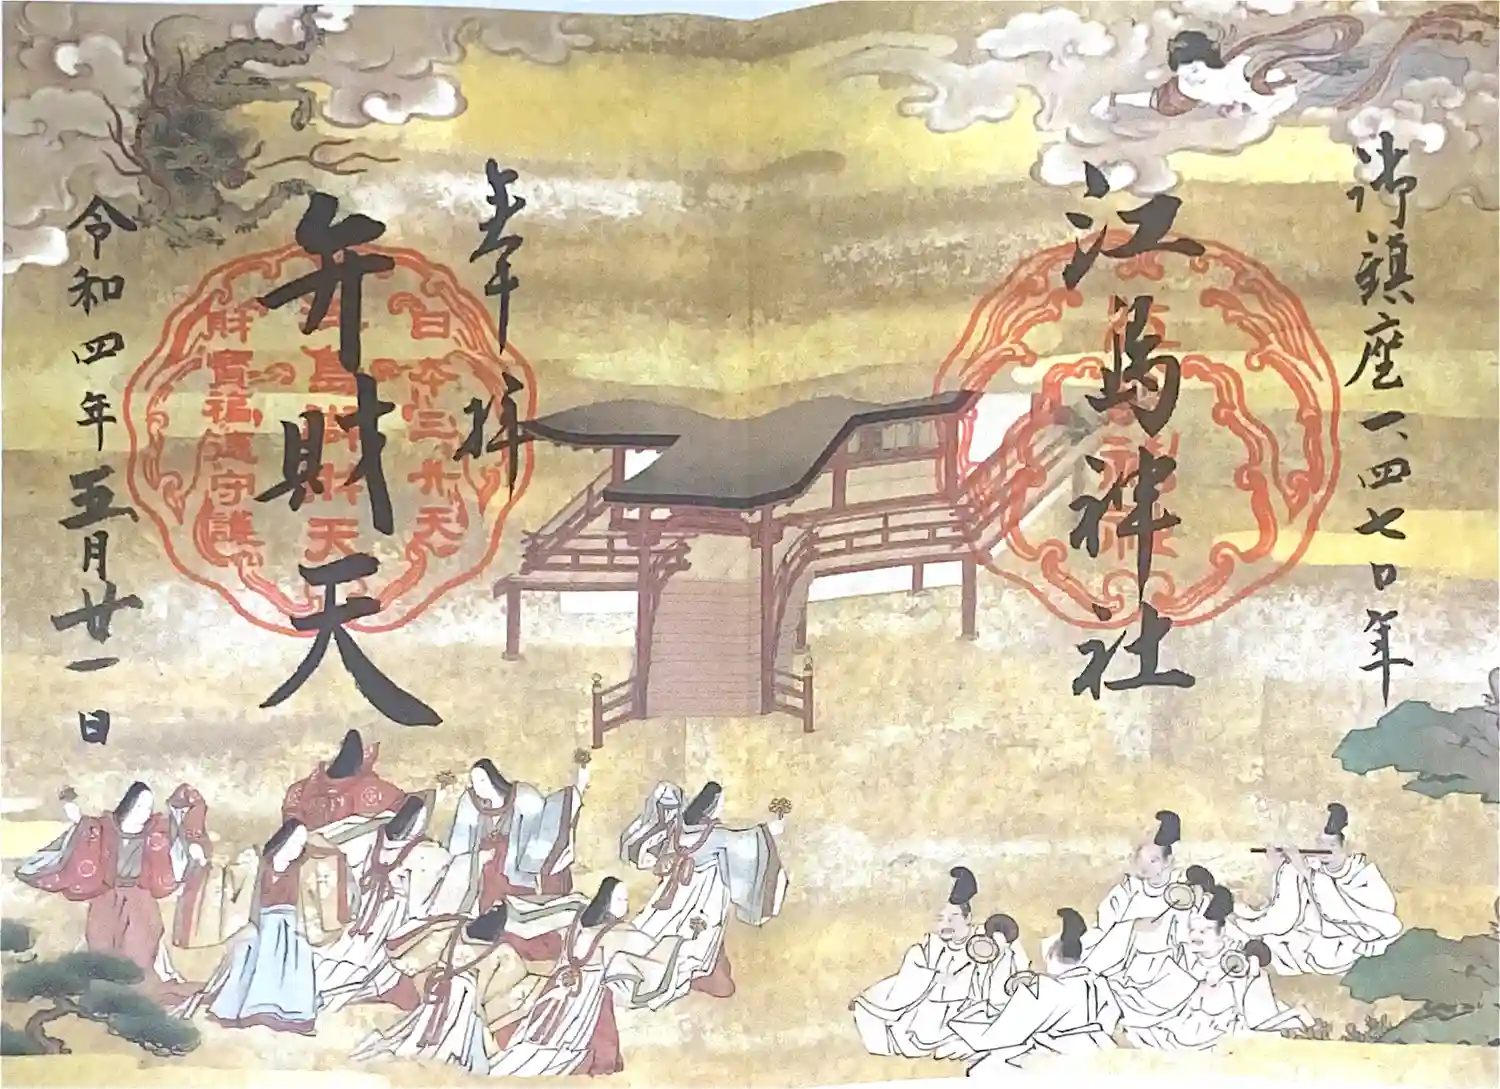 御鎮座一、四七〇年
江島神社
奉拝
弁財天
日本三弁天
江島弁財天
財寶福徳守護
令和四年五月廿一日